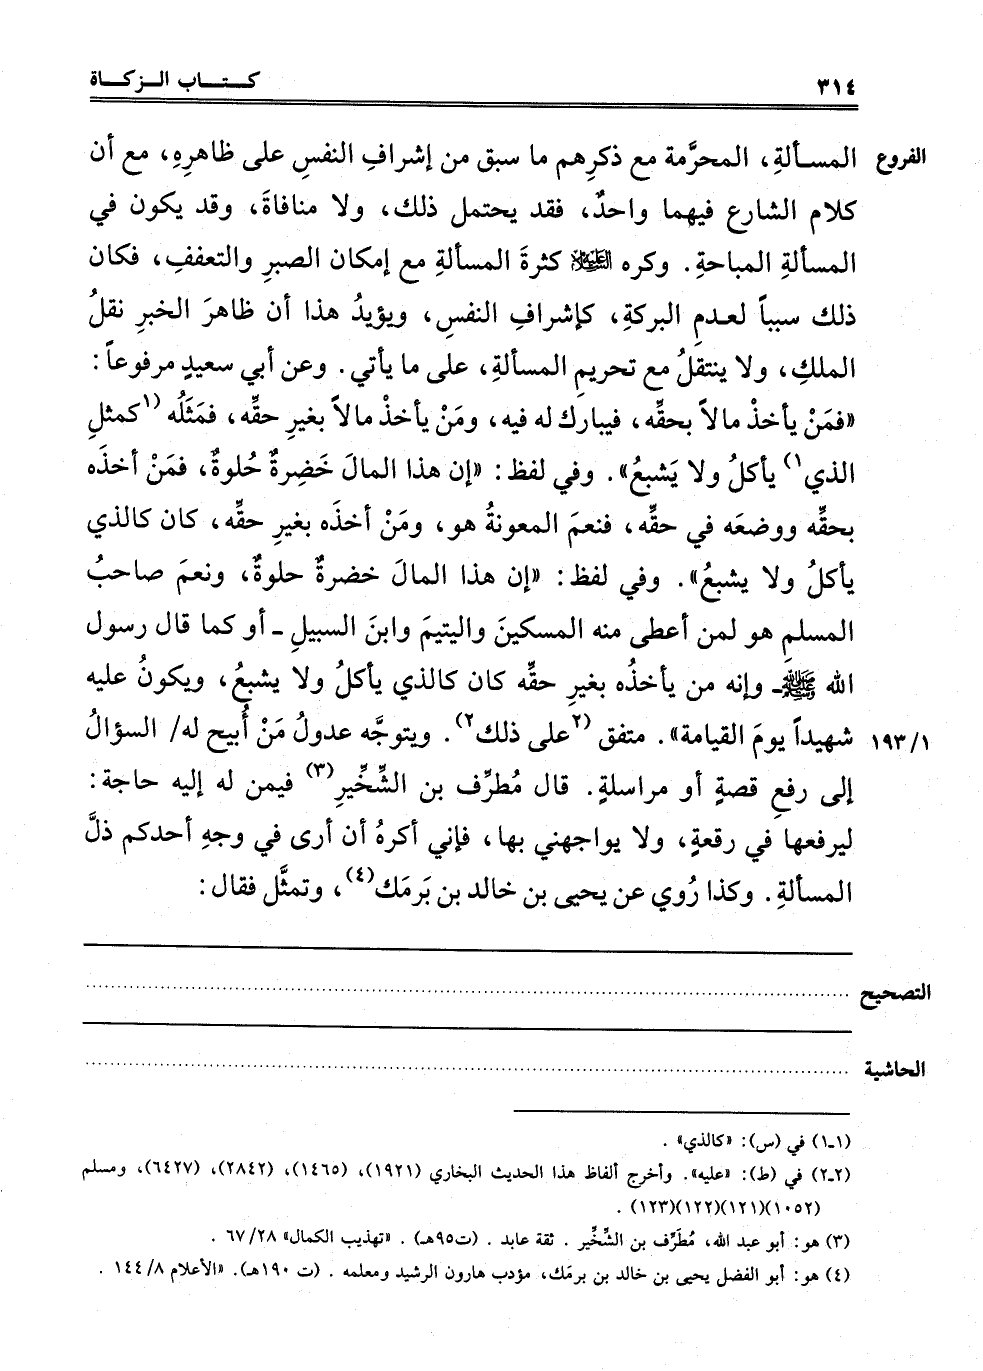 ٣١٤ كـتـــاب الــزكــاة
الفروع المسـألةِ، المحرَّمة مع ذكرِهم ما سبق من إشرافِ النفسِ على ظاهرِهِ، مع أن
كلام الشارع فيهما واحدٌ، فقد يحتمل ذلك، ولا منافاةَ، وقد يكون في
المسألةِ المباحةِ. وكره ﷺ كثرةَ المسألةِ مع إمكان الصبرِ والتعففِ، فكان
ذلك سبباً لعـدمِ البركةِ، كإشرافِ النفسِ، ويؤيدُ هذا أن ظاهرَ الخبرِ نقلُ
الملكِ، ولا ينتقلُ مع تحريمِ المسألةِ، على ما يأتي. وعن أبي سعيدٍ مرفوعاً:
«فمَنْ يأخذْ مالاً بحقِّه، فيبارك له فيه، ومَنْ يأخذْ مالاً بغيرِ حقِّه، فمَثَلُه (١كمثلِ
الذي١) يأكلُ ولا يَشبعُ». وفي لفظ: «إن هذا المالَ خَضِرةٌ حُلوةٌ، فمَنْ أخذَه
بحقِّه ووضعَه في حقِّه، فنعمَ المعونةُ هو، ومَنْ أخذَه بغيرِ حقِّه، كان كالذي
يأكلُ ولا يشبعُ». وفي لفظ: «إن هذا المالَ خضرةٌ حلوةٌ، ونعمَ صاحبُ
المسلمِ هو لمن أعطى منه المسكينَ واليتيمَ وابنَ السبيلِ ـ أو كما قال رسول
الله ﷺـ وإنه من يأخذُه بغيرِ حقِّه كان كالذي يأكلُ ولا يشبعُ، ويكونُ عليه
١٩٣/١ شهيداً يومَ القيامة». متفق (٢على ذلك٢). ويتوجَّه عدولُ مَنْ أُبيح له/ السؤالُ
إلى رفعِ قصةٍ أو مراسلةٍ. قال مُطرِّف بن الشِّخِّيرِ(٣) فيمن له إليه حاجة:
ليرفعها في رقعةٍ، ولا يواجهني بها، فإني أكرهُ أن أرى في وجهِ أحدكم ذلَّ
المسألةِ. وكذا رُوي عن يحيى بن خالد بن بَرمَك(٤)، وتمثَّل فقال:
التصحيح
الحاشية
(١ـ١) في (س): «كالذي».
(٢ـ٢) في (ط): «عليه». وأخرج ألفاظ هذا الحديث البخاري (١٩٢١)، (١٤٦٥)، (٢٨٤٢)، (٦٤٢٧)، ومسلم
(١٠٥٢)(١٢١)(١٢٢)(١٢٣).
(٣) هو: أبو عبد الله، مُطَرِّف بن الشِّخِّير. ثقة عابد. (ت٩٥هـ). «تهذيب الكمال» ٦٧/٢٨.
(٤) هو: أبو الفضل يحيى بن خالد بن برمَك، مؤدب هارون الرشيد ومعلمه. (ت ١٩٠هـ). «الأعلام ١٤٤/٨.